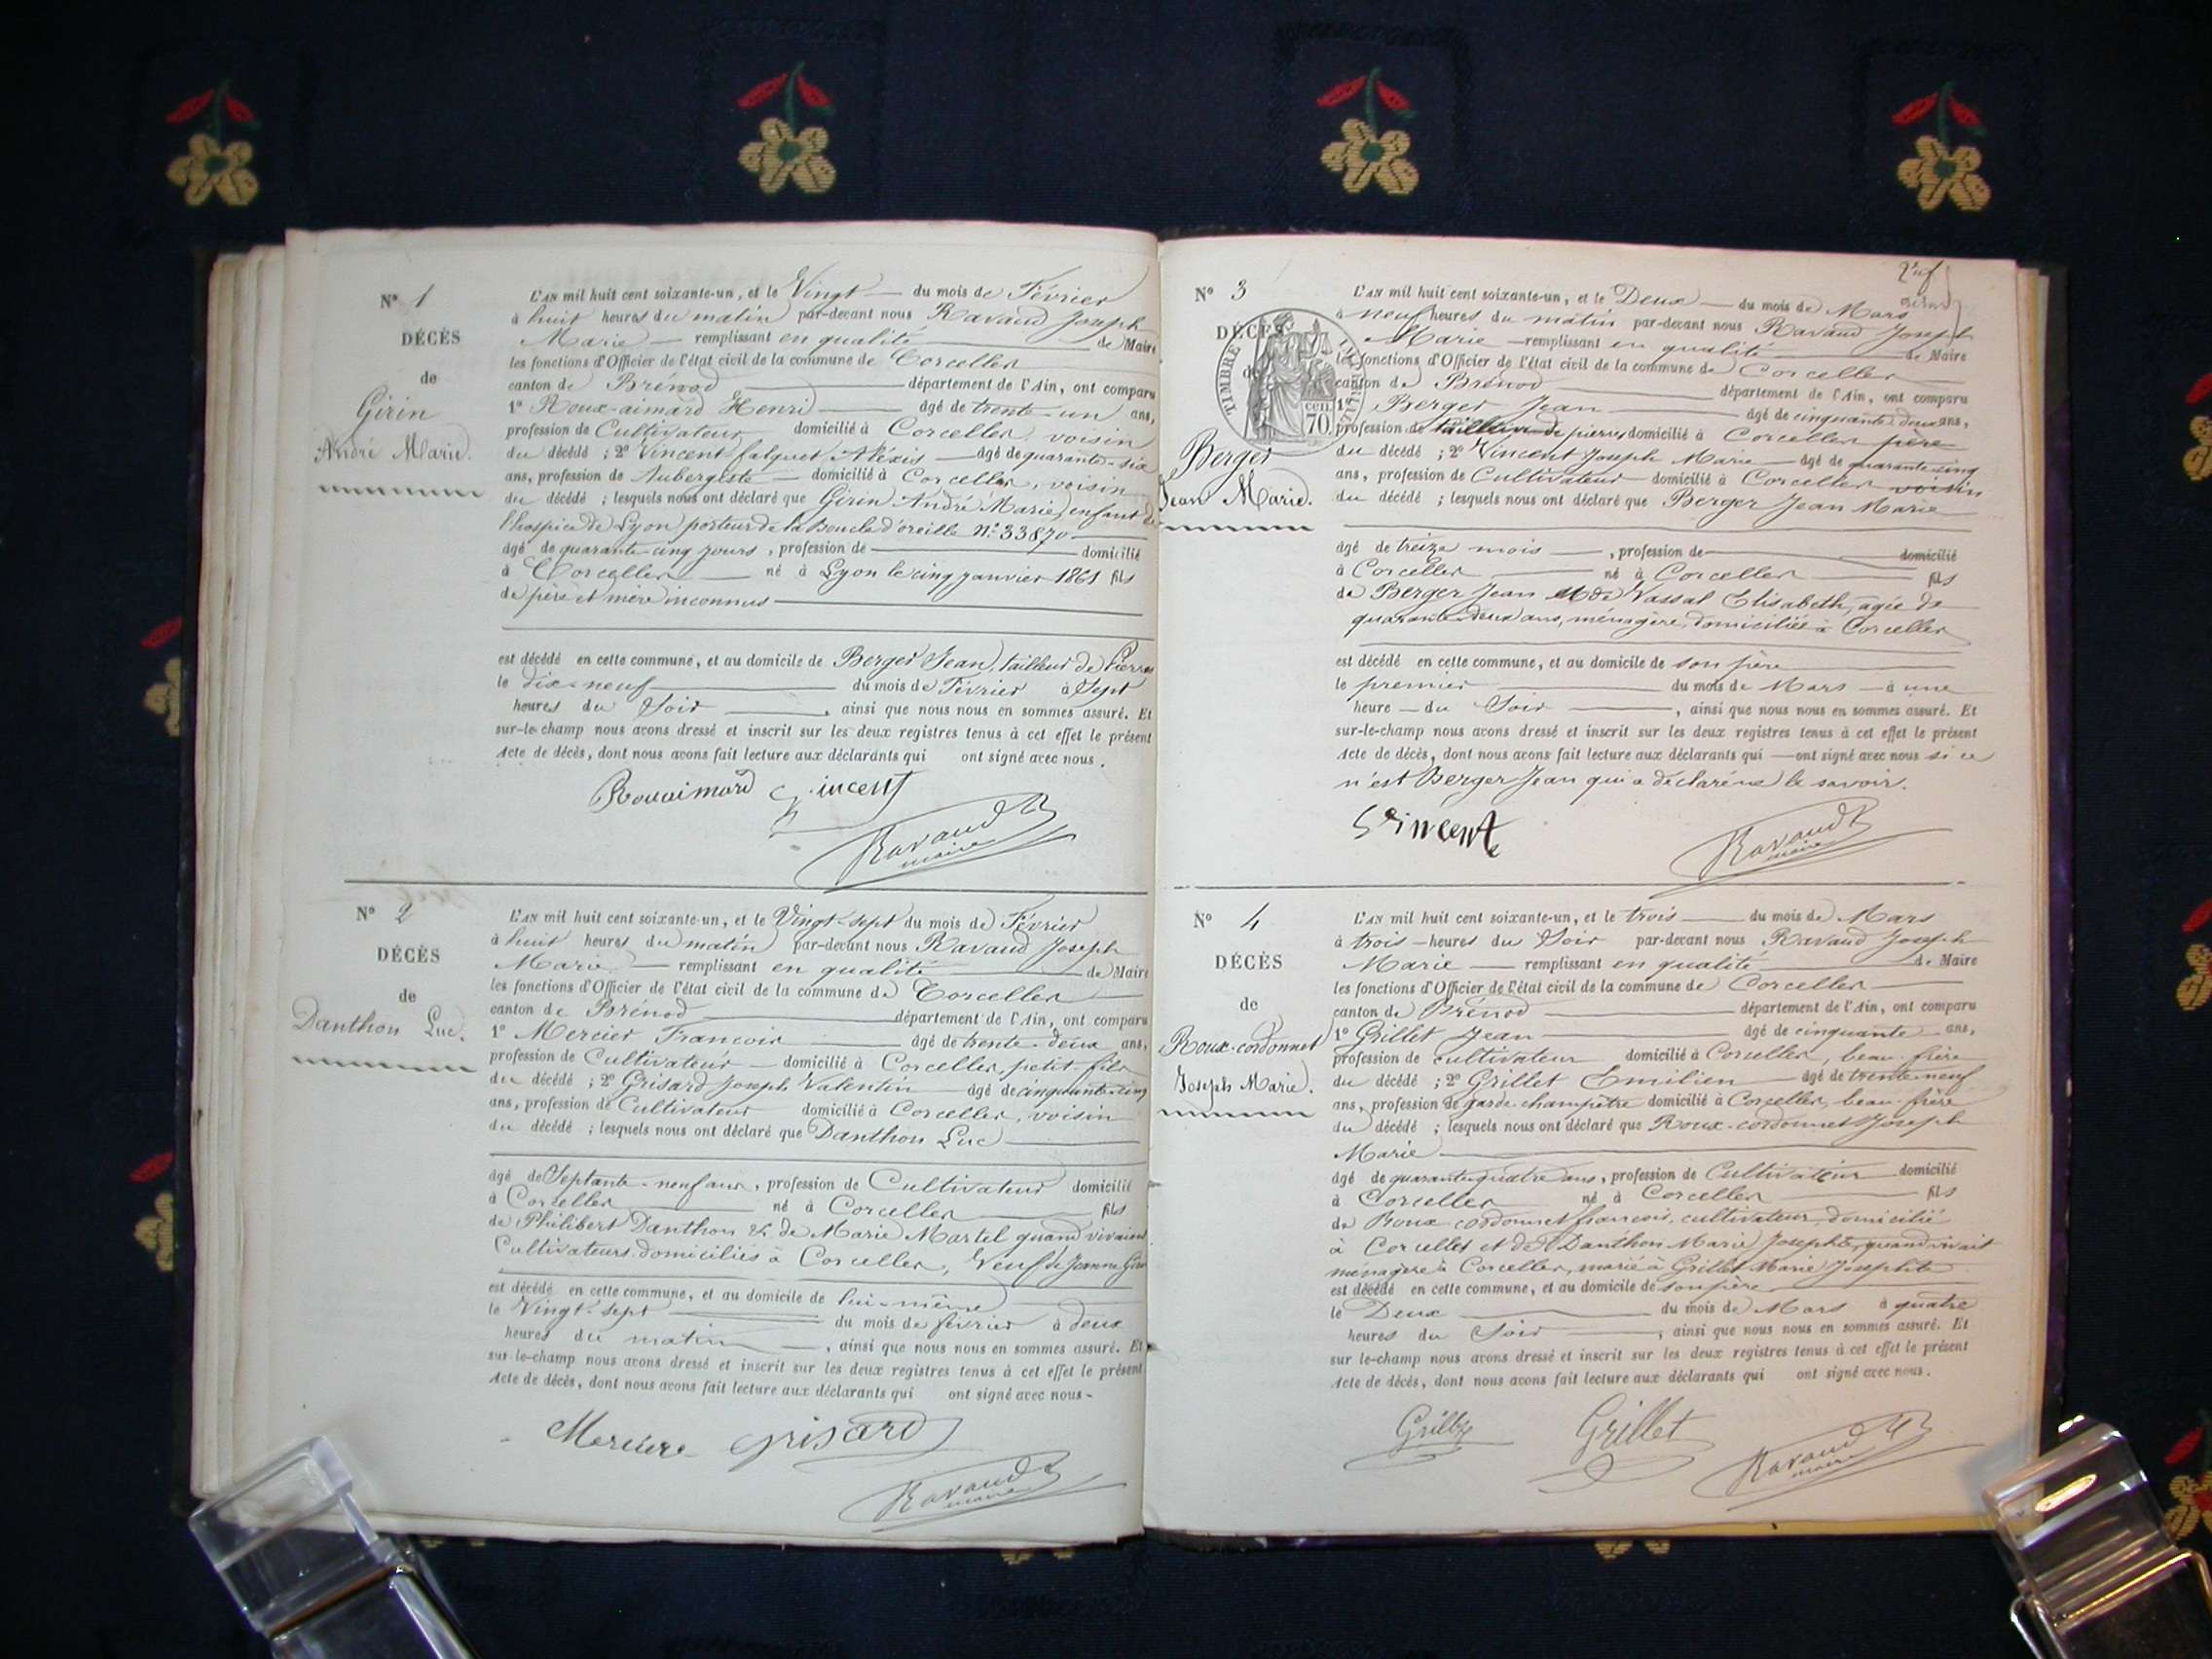 N° 1
DÉCÈS
de
Girin
André Marie.
L'AN mil huit cent soixante-un, et le Vingt du mois de Février
à huit heures du matin par-devant nous Ravaud Joseph
Marie remplissant en qualité de Maire
les fonctions d'Officier de l'état civil de la commune de Corcelles
canton de Brénod département de l'Ain, ont comparu
1° Roux-aimard Henri âgé de trente-un ans,
profession de Cultivateur domicilié à Corcelles, voisin
du décédé ; 2° Vincent falquet Aléxis âgé de quarante-six
ans, profession de Aubergiste domicilié à Corcelles, voisin
du décédé ; lesquels nous ont déclaré que Girin André Marie, enfant de
l'hospice de Lyon porteur de la Boucle d'oreille N° 33870
âgé de quarante-cinq jours, profession de domicilié
à Corcelles né à Lyon le cinq janvier 1861 fils
de père et mère inconnus
est décédé en cette commune, et au domicile de Berger Jean, tailleur de Pierres
le dix-neuf du mois de Février à Sept
heures du Soir, ainsi que nous nous en sommes assuré. Et
sur-le-champ nous avons dressé et inscrit sur les deux registres tenus à cet effet le présent
Acte de décès, dont nous avons fait lecture aux déclarants qui ont signé avec nous.
Rouaimard Vincent
Ravaud
maire
N° 2
DÉCÈS
de
Danthon Luc.
L'AN mil huit cent soixante-un, et le Vingt-sept du mois de Février
à huit heures du matin par-devant nous Ravaud Joseph
Marie remplissant en qualité de Maire
les fonctions d'Officier de l'état civil de la commune de Corcelles
canton de Brénod département de l'Ain, ont comparu
1° Mercier François âgé de trente-deux ans,
profession de Cultivateur domicilié à Corcelles, petit-fils
du décédé ; 2° Grisard Joseph Valentin âgé de cinquante-cinq
ans, profession de Cultivateur domicilié à Corcelles, voisin
du décédé ; lesquels nous ont déclaré que Danthon Luc
âgé de Septante-neuf ans, profession de Cultivateur domicilié
à Corcelles né à Corcelles fils
de Philibert Danthon & de Marie Martel quand vivaient
Cultivateurs domiciliés à Corcelles, Veuf de Jeanne
est décédé en cette commune, et au domicile de lui-même
le Vingt-sept du mois de février à deux
heures du matin, ainsi que nous nous en sommes assuré. Et
sur-le-champ nous avons dressé et inscrit sur les deux registres tenus à cet effet le présent
Acte de décès, dont nous avons fait lecture aux déclarants qui ont signé avec nous.
Merciere grisard
Ravaud
maire
N° 3
DÉCÈS
de
TIMBRE
cen. 70
Berger
Jean Marie.
L'AN mil huit cent soixante-un, et le Deux du mois de Mars
à neuf heures du matin par-devant nous Ravaud Joseph
Marie remplissant en qualité de Maire
les fonctions d'Officier de l'état civil de la commune de Corcelles
canton de Brénod département de l'Ain, ont comparu
1° Berger Jean âgé de cinquante-deux ans,
profession de tailleur de pierres domicilié à Corcelles père
du décédé ; 2° Vincent Joseph Marie âgé de quarante-cinq
ans, profession de Cultivateur domicilié à Corcelles voisin
du décédé ; lesquels nous ont déclaré que Berger Jean Marie
âgé de treize mois, profession de domicilié
à Corcelles né à Corcelles fils
de Berger Jean et de Vassal Elisabeth, agée de
quarante-deux ans, ménagère, domiciliés à Corcelles
est décédé en cette commune, et au domicile de son père
le premier du mois de Mars à une
heure du Soir, ainsi que nous nous en sommes assuré. Et
sur-le-champ nous avons dressé et inscrit sur les deux registres tenus à cet effet le présent
Acte de décès, dont nous avons fait lecture aux déclarants qui ont signé avec nous si ce
n'est Berger Jean qui a déclaré ne le savoir.
Vincent
Ravaud
maire
N° 4
DÉCÈS
de
Roux-cordonnet
Joseph Marie.
L'AN mil huit cent soixante-un, et le trois du mois de Mars
à trois heures du Soir par-devant nous Ravaud Joseph
Marie remplissant en qualité de Maire
les fonctions d'Officier de l'état civil de la commune de Corcelles
canton de Brénod département de l'Ain, ont comparu
1° Grillet Jean âgé de cinquante ans,
profession de cultivateur domicilié à Corcelles, beau-frère
du décédé ; 2° Grillet Emilien âgé de trente-neuf
ans, profession de garde-champêtre domicilié à Corcelles, beau-frère
du décédé ; lesquels nous ont déclaré que Roux-cordonnet Joseph
Marie
âgé de quarante-quatre ans, profession de Cultivateur domicilié
à Corcelles né à Corcelles fils
de Roux-cordonnet françois, cultivateur domicilié
à Corcelles et de Danthon Marie Josephte, quand vivait
ménagère à Corcelles, marié à Grillet Marie Josephte
est décédé en cette commune, et au domicile de son père
le Deux du mois de Mars à quatre
heures du Soir, ainsi que nous nous en sommes assuré. Et
sur le-champ nous avons dressé et inscrit sur les deux registres tenus à cet effet le présent
Acte de décès, dont nous avons fait lecture aux déclarants qui ont signé avec nous.
Grillet
Ravaud
maire